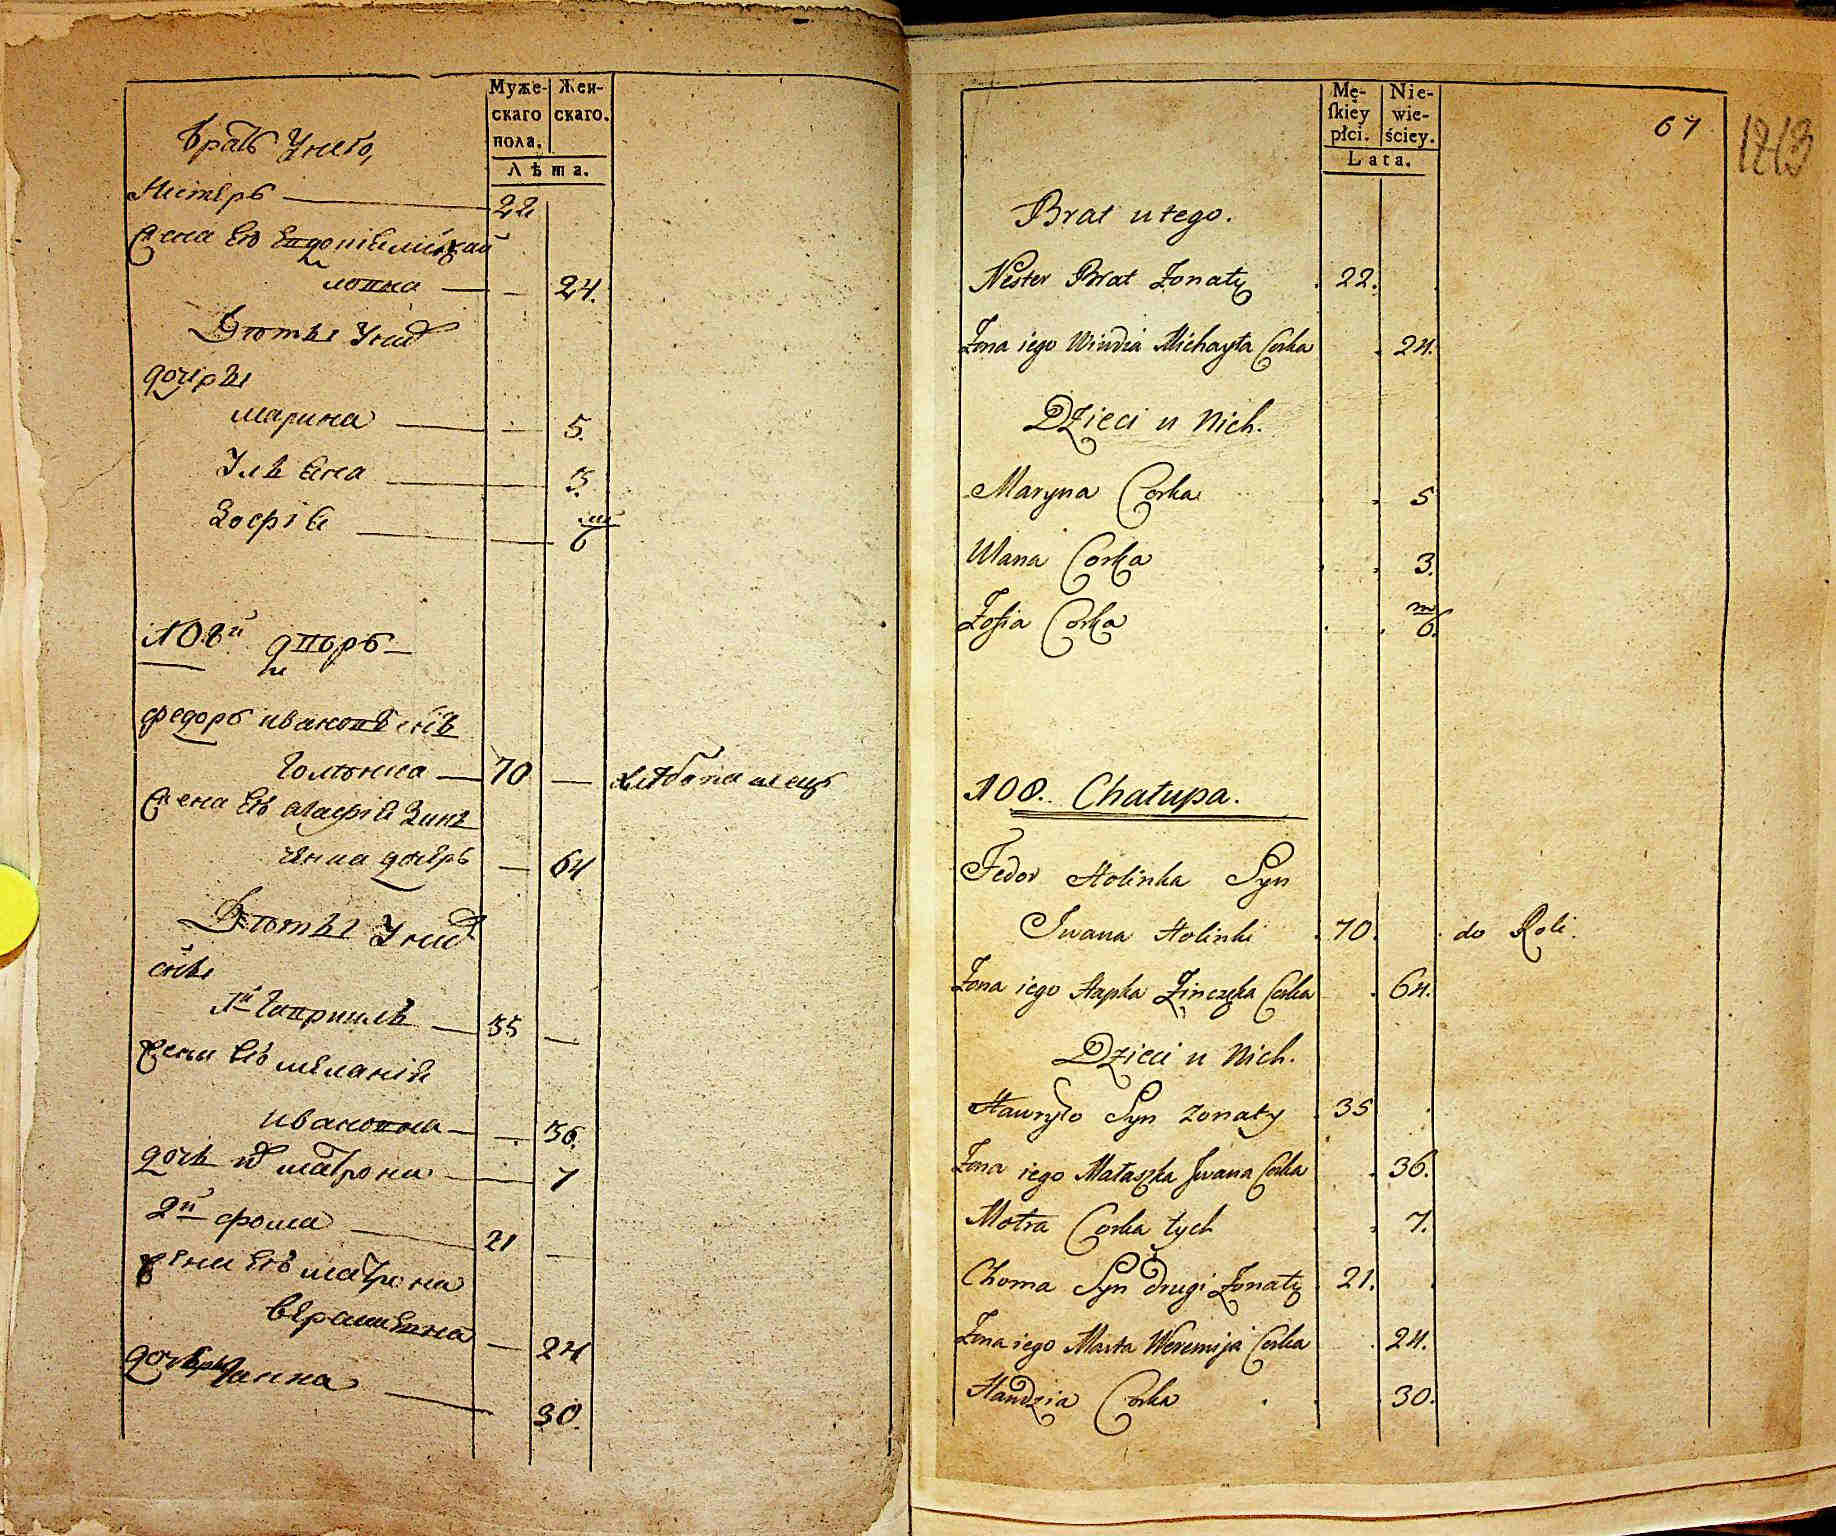 Муже-
скаго
пола.
Жен-
скаго.
Лѣта.
братъ У него,
Нестеръ 22
Жена его Евдокія Михай
ловна 24.
Дѣти У нихъ
дочери
марина 5.
Ульяна 3.
Зофія м/6
108й дворъ
федоръ ивановъ снъ
Голинка 70 хлѣбопашецъ
Жена его Агафія Зинъ
ченка дочерь 64
Дѣти У нихъ
снъ
1й Гаврила 35
Жена его меланія
ивановна 36.
дочь ихъ матрона 7
2й фома 21
Жена его матрона
веремѣевна 24
дочерь Ганна 30.
Mę-
ſkiéy
płci.
Nie-
wie-
ściey.
Lata.
67
Brat u tego.
Nester Brat Żonaty 22.
Żona iego Michayła Corka 24.
Dzieci u Nich.
Maryna Corka 5
Ulana Corka 3.
Zofia Corka m/6.
108. Chałupa.
Fedor Holinka Syn
Iwana Holinki 70. do Roli.
Żona iego Hapka Zinczęka Corka 64.
Dzieci u Nich.
Hawryło Syn Żonaty 35
Żona iego Małaszka Iwana Corka 36.
Motra Corka tych 7.
Choma Syn drugi Żonaty 21.
Żona iego Marta Weremija Corka 24.
Handzia Corka 30.